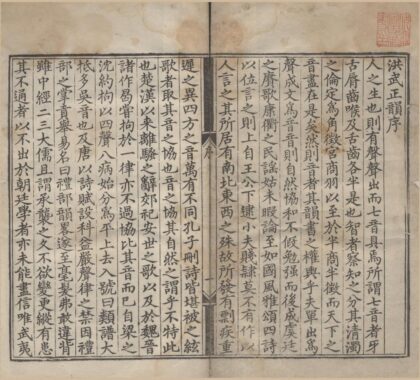 洪武正韻序
人之生也則有聲聲出而七音具焉所謂七音者牙
舌脣齒喉及舌齒各半是也智者察知之分其清濁
之倫定為角徵宮商羽以至於半商半徵而天下之
音盡在是矣然則音者其韻書之權輿乎夫單出為
聲成文為音音則自然協和不假勉強而後成虞廷
之賡歌康衢之民謠姑未暇論至如國風雅頌四詩
以位言之則上自王公下逮小夫賤隸莫不有作以
人言之其所居有南北東西之殊故所發有剽疾重
序
遲之異四方之音萬有不同孔子刪詩皆堪被之絃
歌者取其音之協也音之協其自然之謂乎不特此
也楚漢以來離騷之辭郊祀安世之歌以及於魏晉
諸作曷嘗拘於一律亦不過協比其音而已自梁之
沈約拘以四聲八病始分為平上去入號曰類譜大
抵多吳音也及唐以詩賦設科益嚴聲律之禁因禮
部之掌貢舉易名曰禮部韻略遂至毫髮弗敢違背
雖中經二三大儒且謂承襲之久不欲變更縱有患
其不通者以不出於朝廷學者亦未能盡信唯武夷